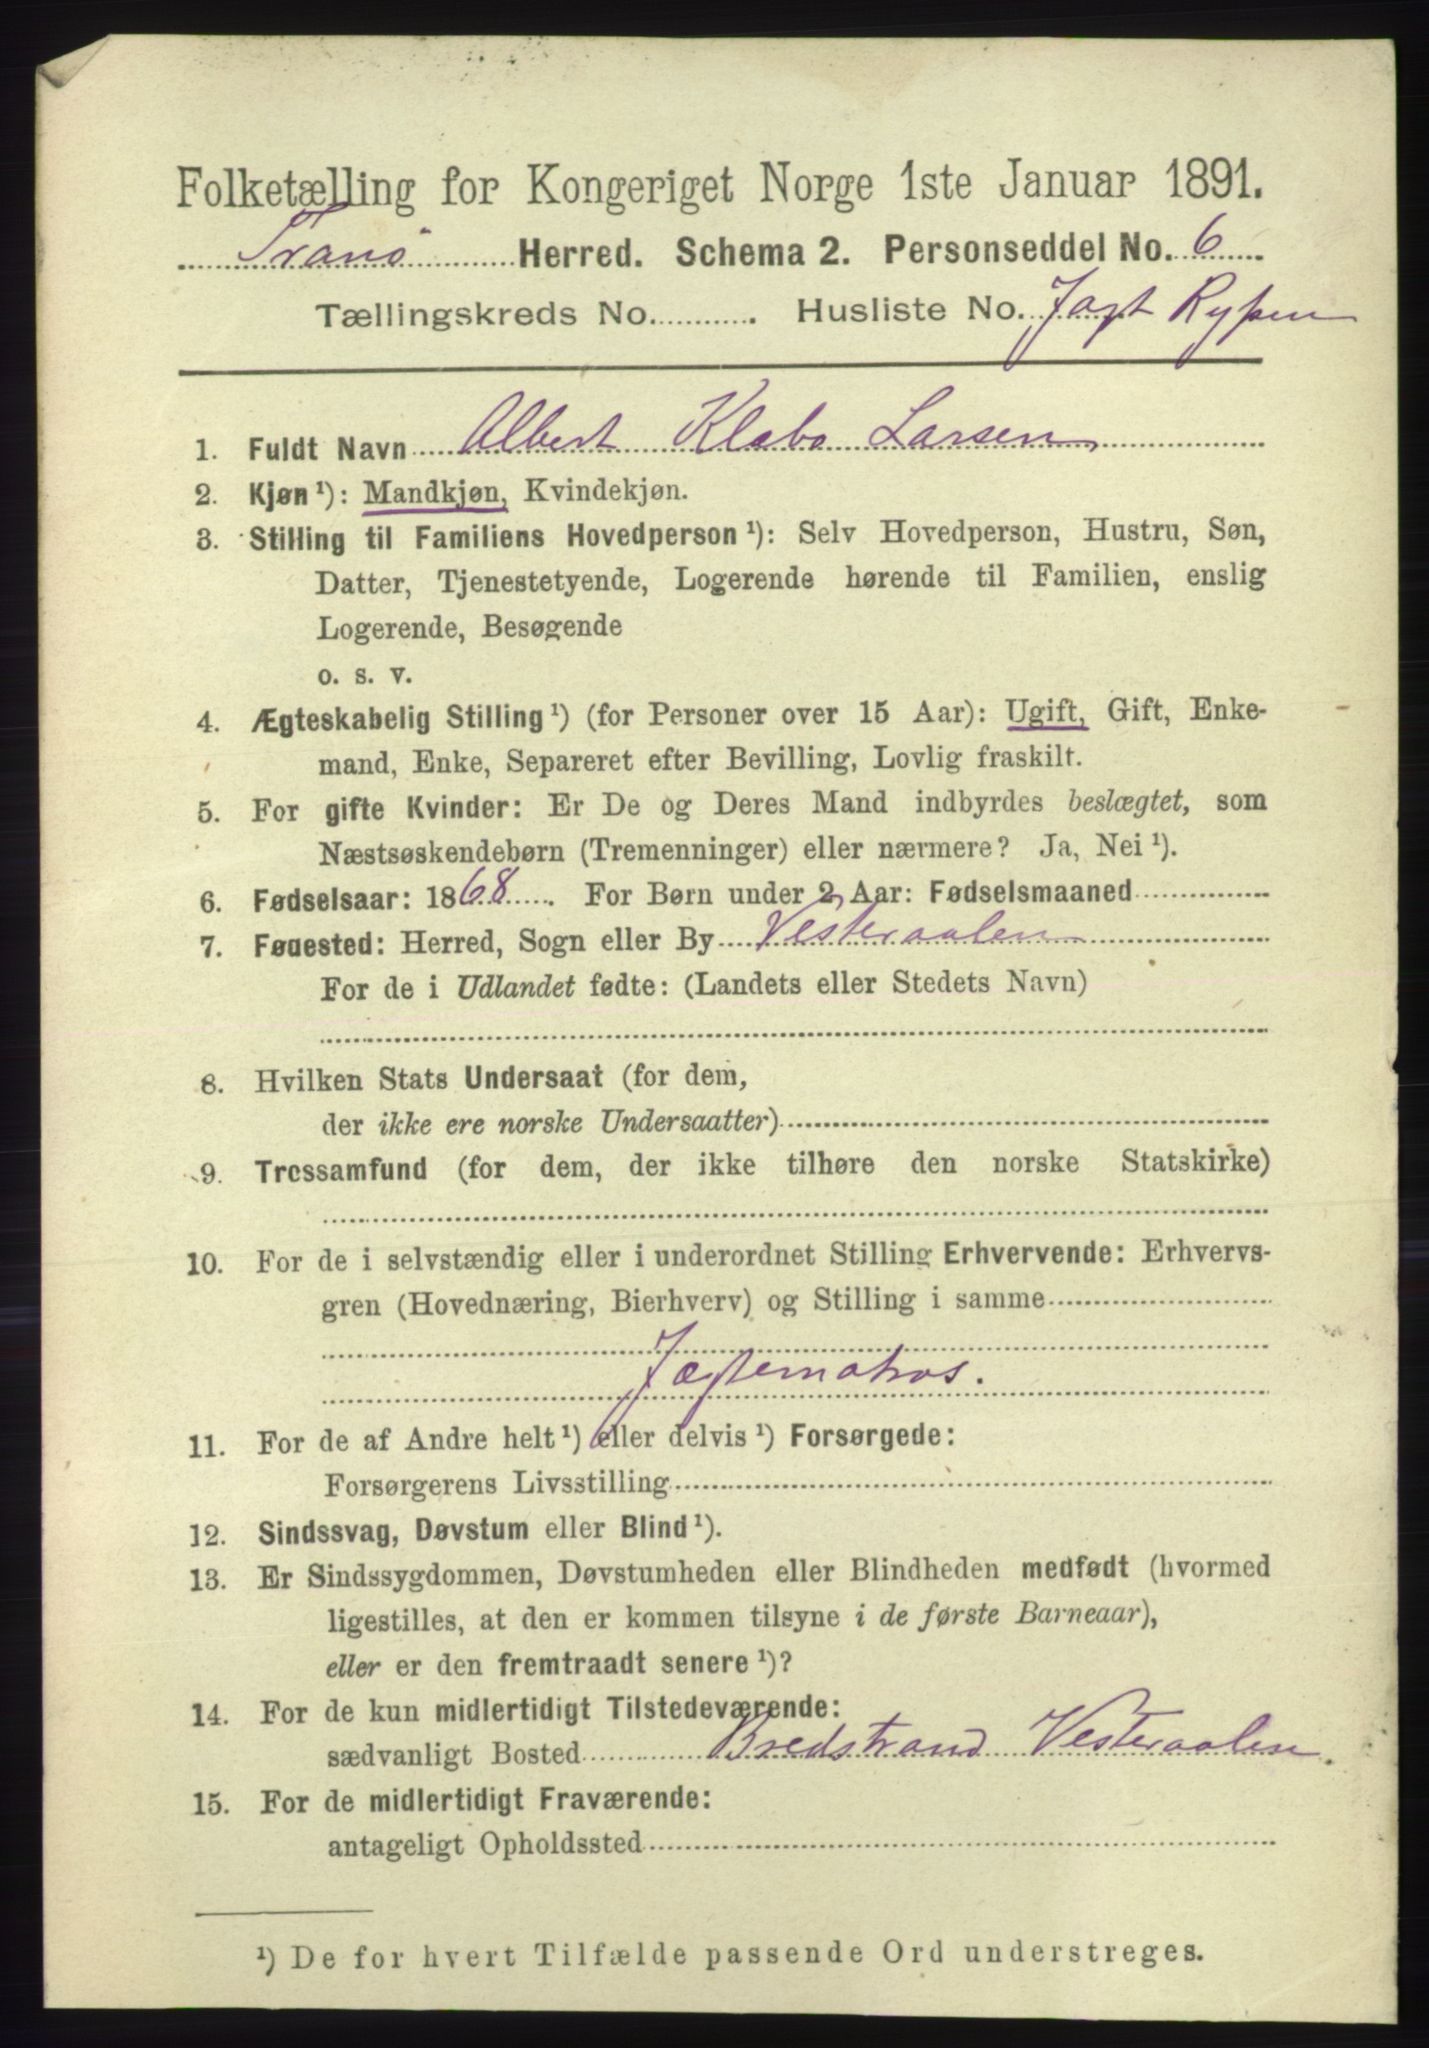 Folketælling for Kongeriget Norge 1ste Januar 1891.
Tranö Herred. Schema 2. Personseddel No. 6
Tællingskreds No. . Husliste No. Jagt Rypen
1. Fuldt Navn Albert Klæbo Larsen
2. Kjøn ¹): Mandkjøn, Kvindekjøn.
3. Stilling til Familiens Hovedperson ¹): Selv Hovedperson, Hustru, Søn,
Datter, Tjenestetyende, Logerende hørende til Familien, enslig
Logerende, Besøgende
o. s. v.
4. Ægteskabelig Stilling ¹) (for Personer over 15 Aar): Ugift, Gift, Enke-
mand, Enke, Separeret efter Bevilling, Lovlig fraskilt.
5. For gifte Kvinder: Er De og Deres Mand indbyrdes beslægtet, som
Næstsøskendebørn (Tremenninger) eller nærmere? Ja, Nei ¹).
6. Fødselsaar: 1868. For Børn under 2 Aar: Fødselsmaaned
7. Fødested: Herred, Sogn eller By Vesteraalen
For de i Udlandet fødte: (Landets eller Stedets Navn)
8. Hvilken Stats Undersaat (for dem,
der ikke ere norske Undersaatter)
9. Trossamfund (for dem, der ikke tilhøre den norske Statskirke)
10. For de i selvstændig eller i underordnet Stilling Erhvervende: Erhvervs-
gren (Hovednæring, Bierhverv) og Stilling i samme
Jægtematros.
11. For de af Andre helt ¹) eller delvis ¹) Forsørgede:
Forsørgerens Livsstilling
12. Sindssvag, Døvstum eller Blind ¹).
13. Er Sindssygdommen, Døvstumheden eller Blindheden medfødt (hvormed
ligestilles, at den er kommen tilsyne i de første Barneaar),
eller er den fremtraadt senere ¹)?
14. For de kun midlertidigt Tilstedeværende:
sædvanligt Bosted Bredstrand Vesteraalen.
15. For de midlertidigt Fraværende:
antageligt Opholdssted
¹) De for hvert Tilfælde passende Ord understreges.